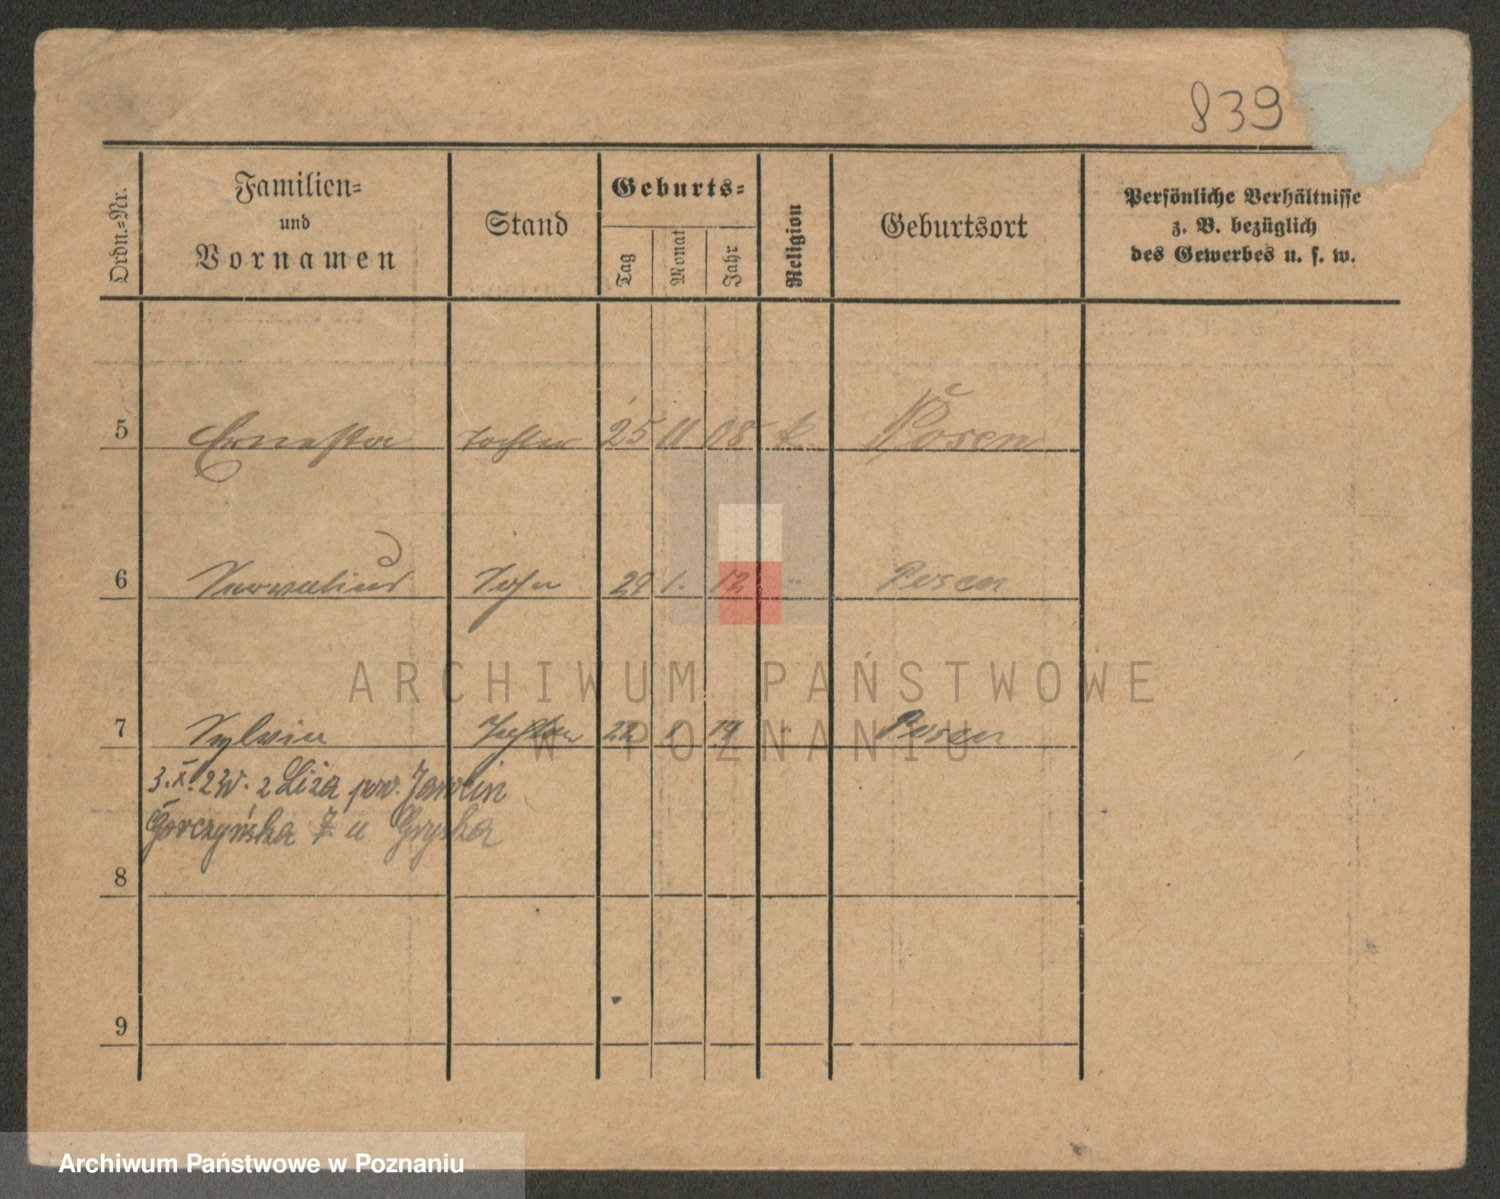 839
Ordn.-Nr.
Familien-
und
Vornamen
Stand
Geburts-
Tag
Monat
Jahr
Religion
Geburtsort
Persönliche Verhältnisse
z. B. bezüglich
des Gewerbes u. s. w.
5 Ernesta Tochter 25 11 08 k Posen
6 Sohn 29 1. 12 " Posen
7 Sylvia Tochter 22 19 Posen
3.X. 2 Liża pow. Jarocin
Górczyńska 7 u Gryska
8
9
ARCHIWUM PAŃSTWOWE
W POZNANIU
Archiwum Państwowe w Poznaniu